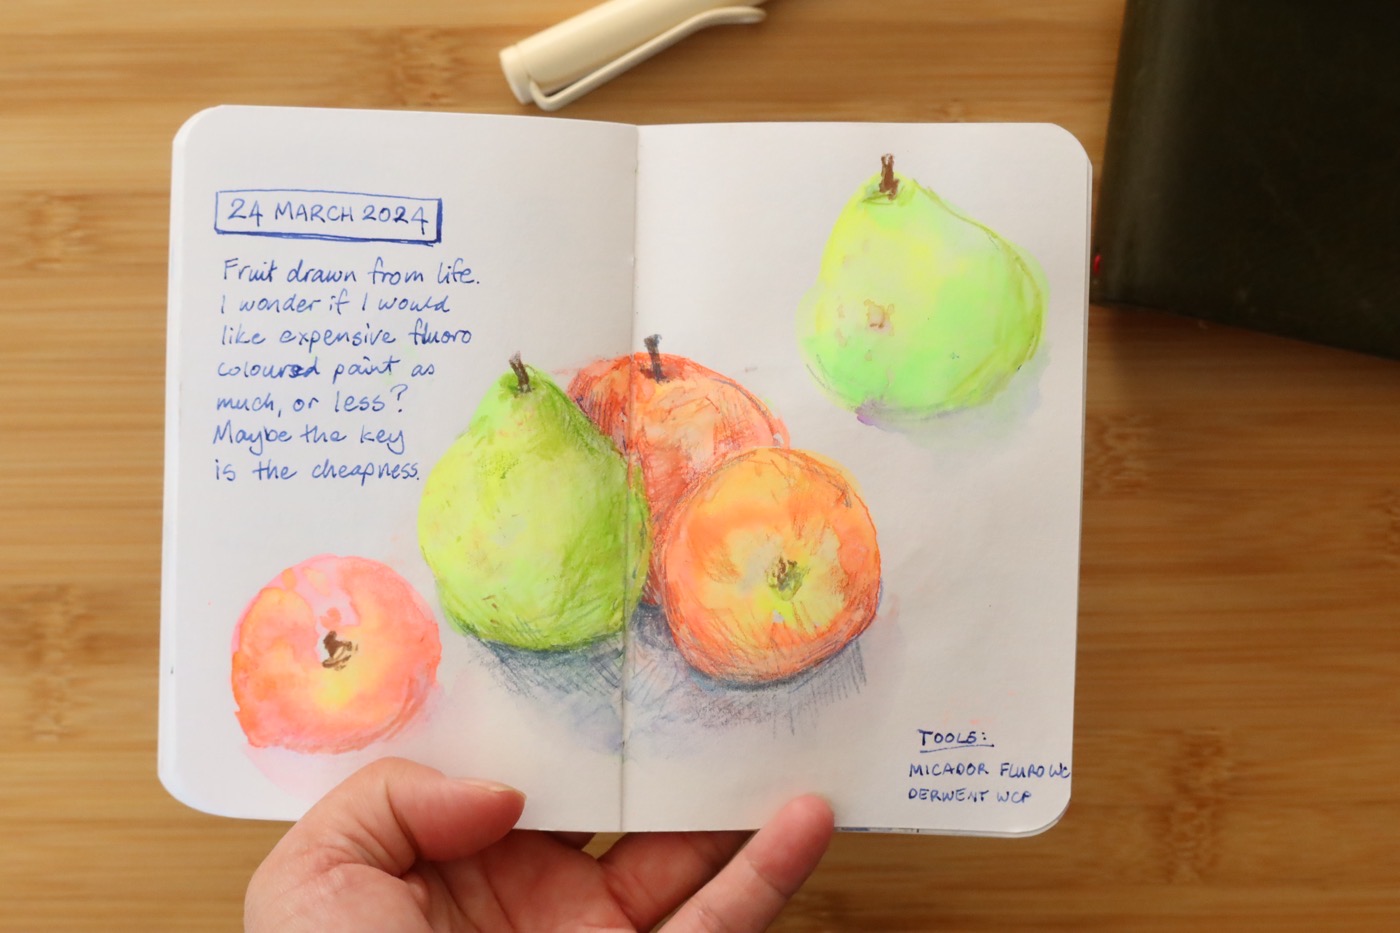 24 MARCH 2024
Fruit drawn from life.
I wonder if I would
like expensive fluoro
coloured paint as
much, or less?
Maybe the key
is the cheapness.
TOOLS:
MICADOR FLURO WC
DERWENT WCP